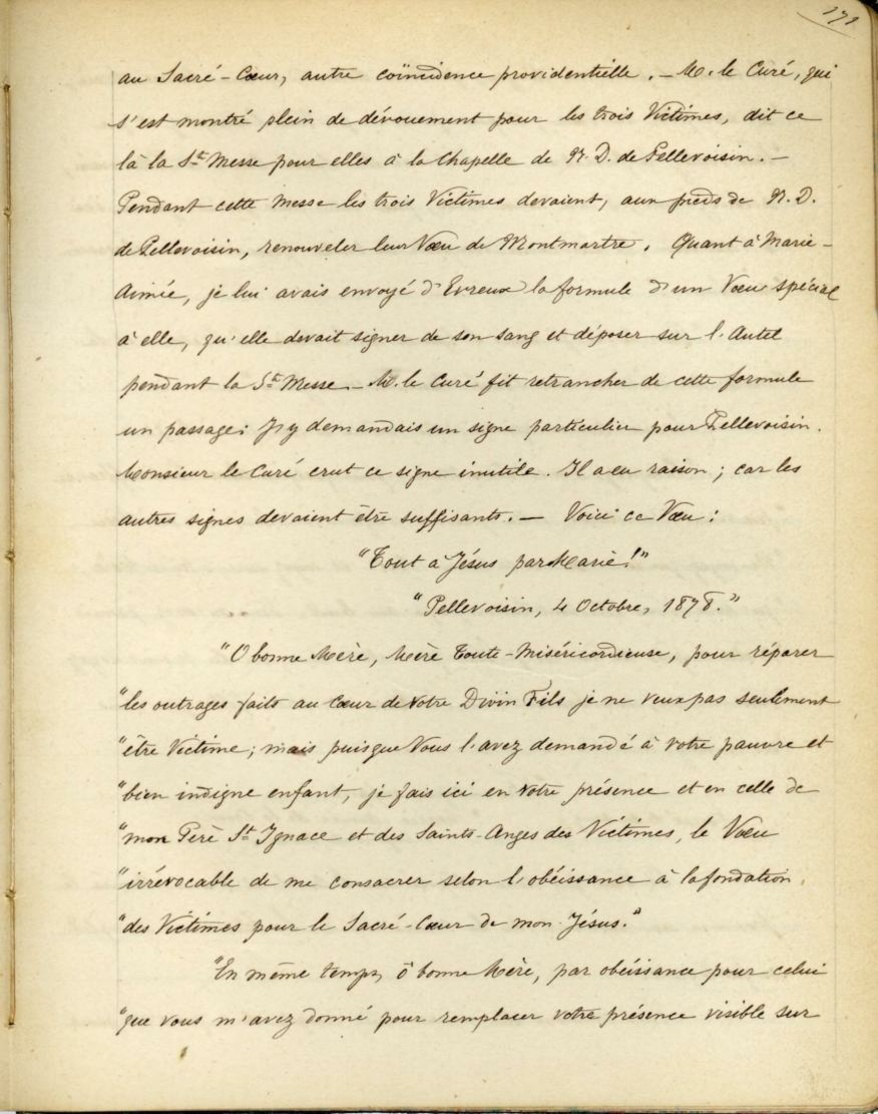 171
au Sacré-Cœur, autre coïncidence providentielle. — M. le Curé, qui
s'est montré plein de dévouement pour les trois Victimes, dit ce
là la Ste Messe pour elles à la Chapelle de N. D. de Pellevoisin. —
Pendant cette Messe les trois Victimes devaient, aux pieds de N. D.
de Pellevoisin, renouveler leur Vœu de Montmartre. Quant à Marie-
Aimée, je lui avais envoyé d'Evreux la formule d'un Vœu spécial
à elle, qu'elle devait signer de son sang et déposer sur l'Autel
pendant la Ste Messe. — M. le Curé fit retrancher de cette formule
un passage: J'y demandais un signe particulier pour Pellevoisin.
Monsieur le Curé crut ce signe inutile. Il a eu raison; car les
autres signes devaient être suffisants. — Voici ce Vœu:
"Tout à Jésus par Marie!"
"Pellevoisin, 4 Octobre, 1878."
"O bonne Mère, Mère Toute-Miséricordieuse, pour réparer
"les outrages faits au Cœur de Votre Divin Fils je ne veux pas seulement
"être Victime; mais puisque Vous l'avez demandé à votre pauvre et
"bien indigne enfant, je fais ici en votre présence et en celle de
"mon Père St Ignace et des Saints-Anges des Victimes, le Vœu
"irrévocable de me consacrer selon l'obéissance à la fondation
"des Victimes pour le Sacré-Cœur de mon Jésus."
"En même temps, ô bonne Mère, par obéissance pour celui
"que vous m'avez donné pour remplacer votre présence visible sur